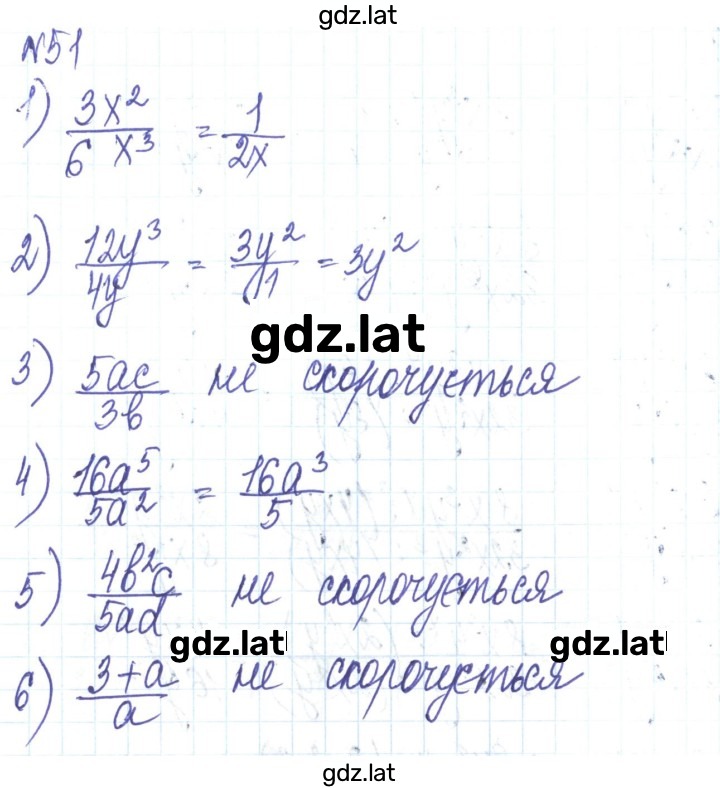 gdz.lat
№51
1) 3x²/6x³ = 1/2x
2) 12y³/4y = 3y²/1 = 3y²
gdz.lat
3) 5ac/3b не скорочується
4) 16a⁵/5a² = 16a³/5
5) 4b²c/5ad не скорочується
gdz.lat gdz.lat
6) 3+a/a не скорочується
gdz.lat